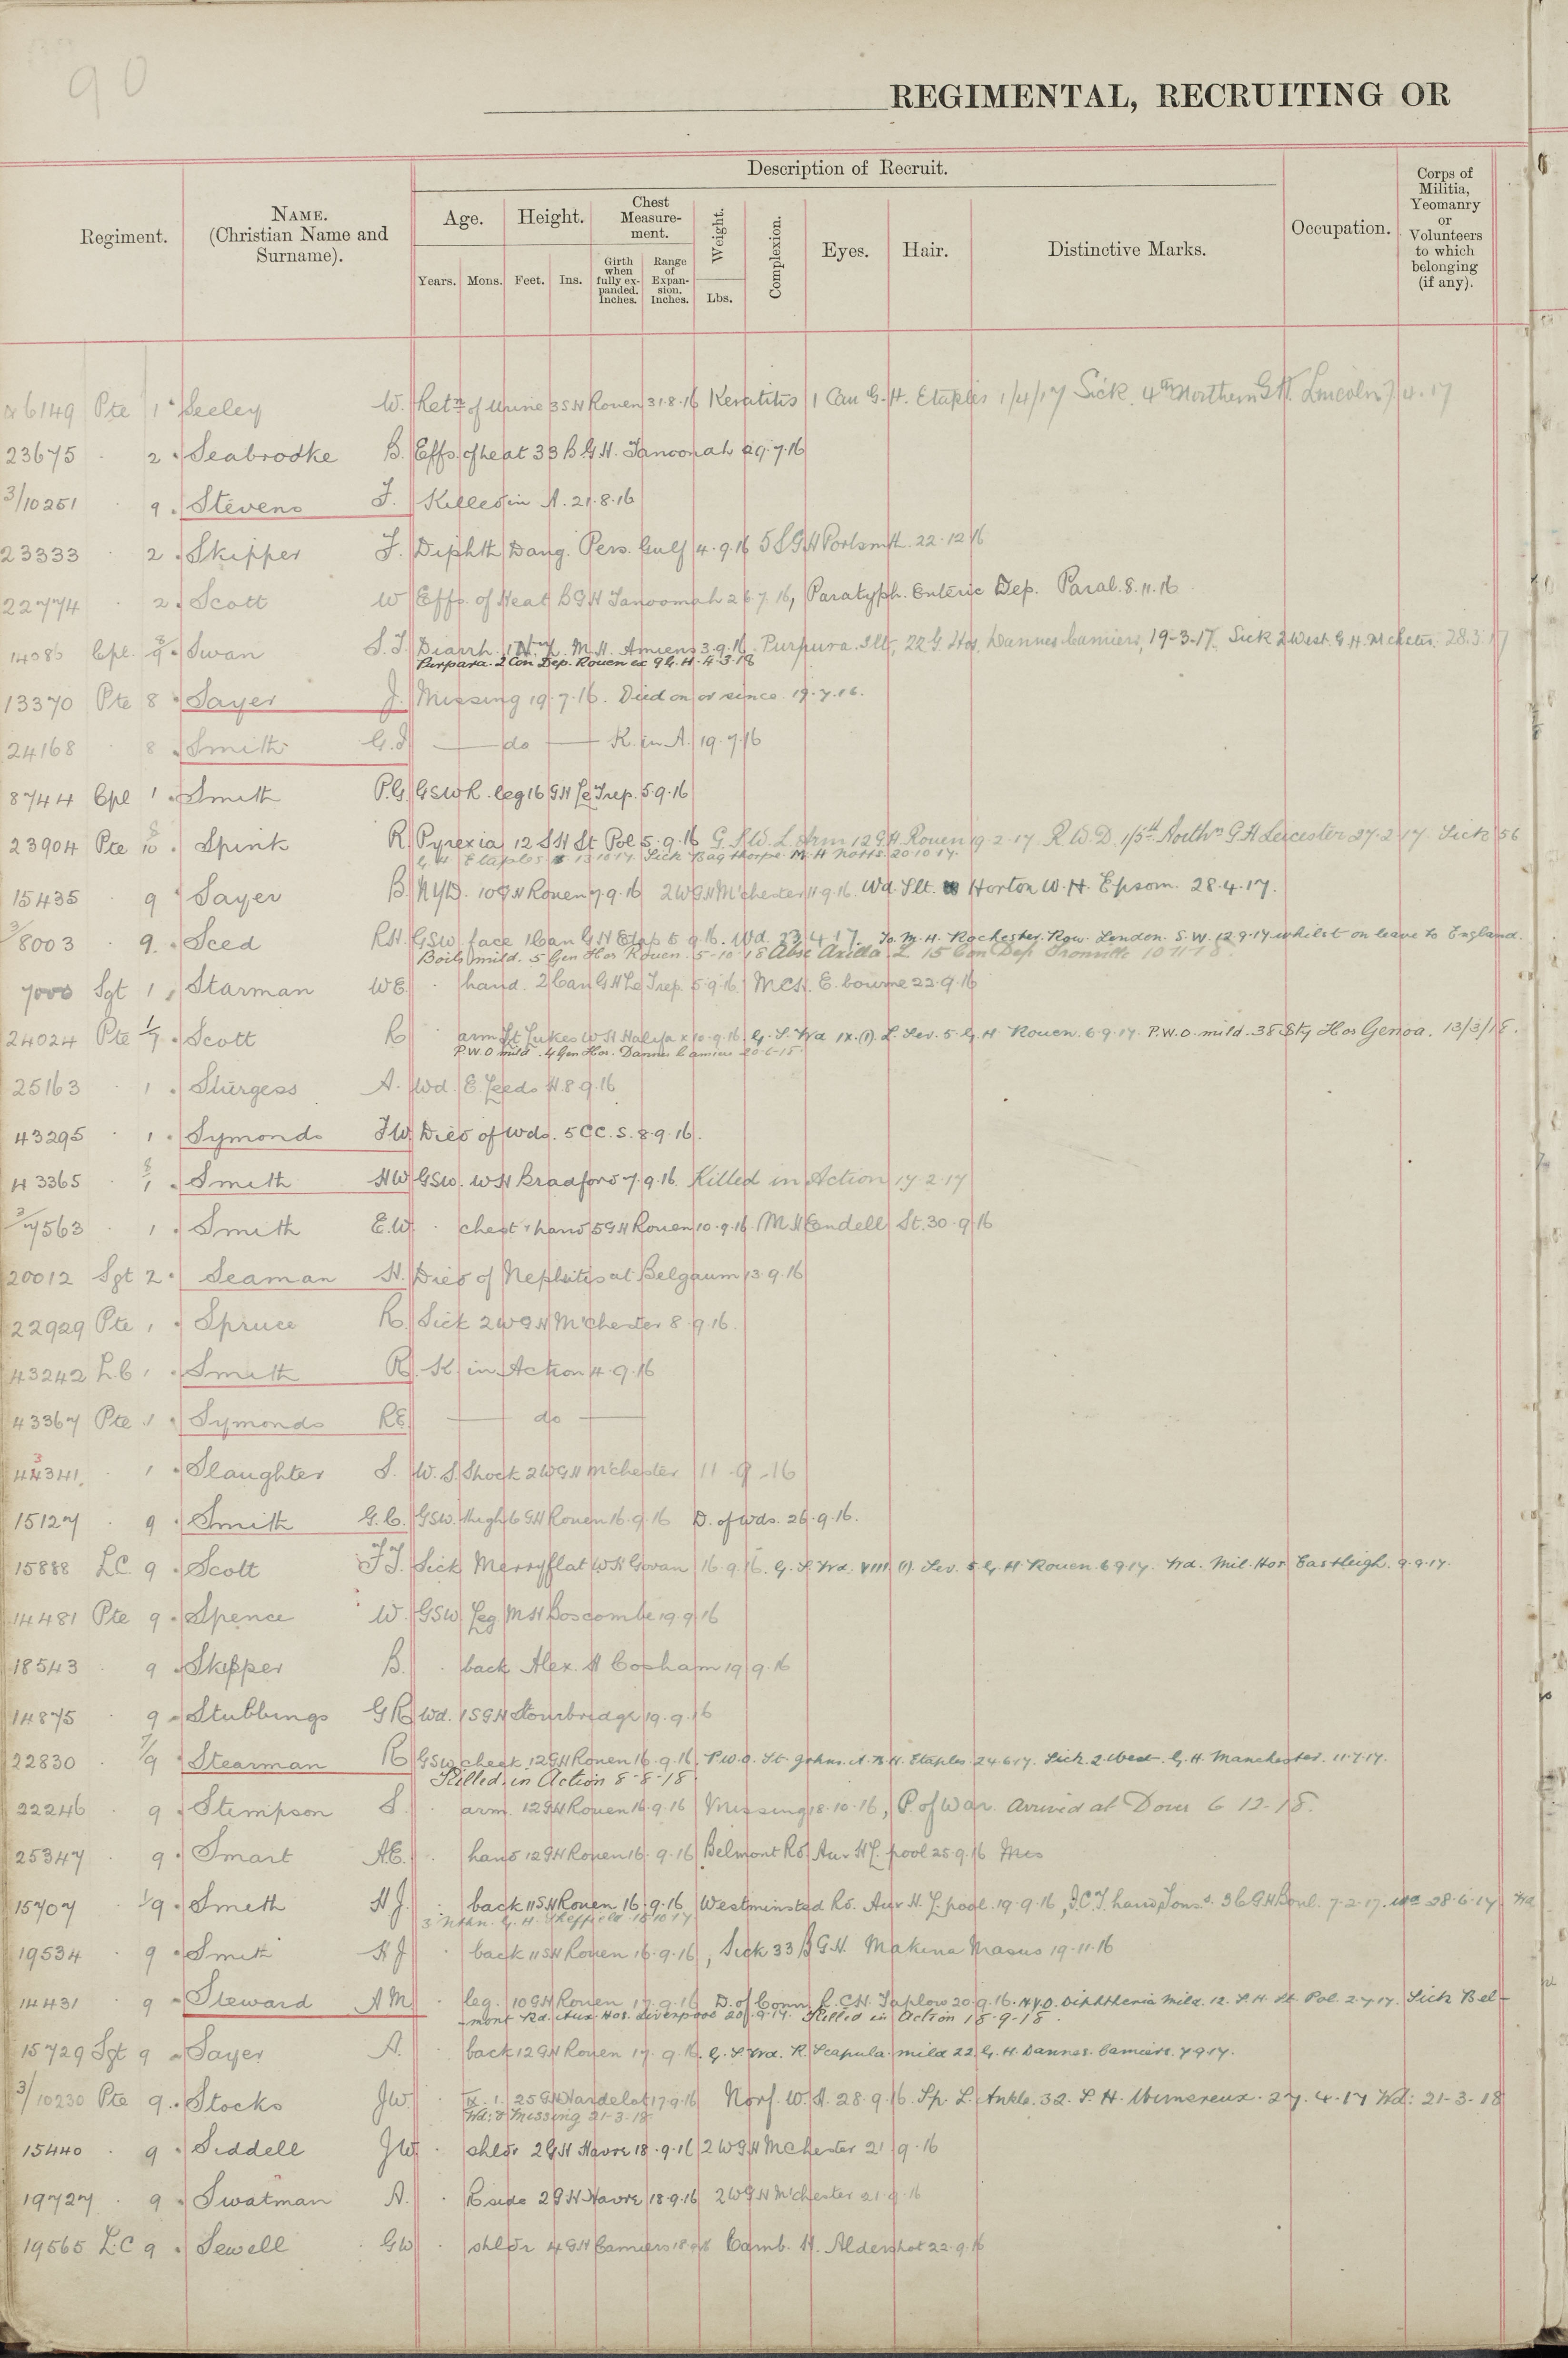 90
REGIMENTAL, RECRUITING OR
Description of Recruit.
Regiment.
NAME.
(Christian Name and
Surname).
Age.
Height.
Chest
Measure-
ment.
Weight.
Complexion.
Eyes.
Hair.
Distinctive Marks.
Occupation.
Corps of
Militia,
Yeomanry
or
Volunteers
to which
belonging
(if any).
Years.
Mons.
Feet.
Ins.
Girth
when
fully ex-
panded.
Inches.
Range
of
Expan-
sion.
Inches.
Lbs.
6149 Pte 1 Seeley W. Retn of Urine 3 S H Rouen 31.8.16 Keratitis 1 Can G.H. Etaples 1/4/17 Sick. 4th Northern G.H. Lincoln 7.4.17
23675 . 2 . Seabrooke B. Effs. of heat 33 B.G.H. Tanoomah 29.7.16
3/10251 . 9 . Stevens F. Killed in A. 21.8.16
23333 . 2 . Skipper F. Diphth Dang. Pers. Gulf 4.9.16 5 S G H Portsmth. 22.12.16
22774 . 2 . Scott W Effs. of Heat B G H Tanoomah 26.7.16, Paratyph. Enteric Dep. Paral. 8.11.16
14086 Cpl. 9 . Swan S.J. Diarrh. M.H. Amiens 3.9.16. Purpura. Slt, 22 G. Hos. Dannes Camiers, 19-3-17. Sick 2 West. G.H. M'chster. 28.3.17
Purpara. 2 Con Dep. Rouen ex 9 G.H. 4-3-18
13370 Pte 8 . Sayer J. Missing 19.7.16. Died on or since 19.7.16.
24168 . 8 . Smith G.J — do — K. in A. 19.7.16
8744 Cpl 1 . Smith P.G. GSW R. leg 16 G H Le Trep. 5.9.16
23904 Pte 10 . Spink R Pyrexia 12 S H St Pol 5.9.16 G.S.W. L. Arm 12 G.H. Rouen 19.2.17 R W D. 1/5th Northn G H Leicester 27.2.17. Sick 56
G H Etaples 13 10 17. Sick Bagthorpe M H Notts. 20 10 17.
15435 9 . Sayer B. NYD. 10 G H Rouen 7.9.16 2 W G H M'chester 11.9.16. Wd. Slt. Horton W.H. Epsom. 28.4.17.
3/8003 . 9 . Sced R H. GSW face 1 Can G H Etap 5.9.16. Wd. 23.4.17. To. M.H. Rochester Row. London. S.W. 12.9.17 whilst on leave to England.
Boils mild. 5 Gen Hos Rouen. 5-10-18 Absc Axilla L 15 Con Dep Trouville 10-11-18
7000 Sgt 1 . Starman W E. . hand. 2 Can G H Le Trep. 5.9.16. M C H. E. bourne 22.9.16
24024 Pte 1/7 . Scott R . arm St Lukes W H Halifax 10.9.16. G.S. Wd IX.(1). L. Sev. 5 G.H. Rouen. 6.9.17. P.W.O. mild. 38 Sty Hos Genoa. 13/3/18.
P.W.O mild. 4 Gen Hos. Dannes Camiers 20-6-18.
25163 . 1 . Sturgess A. Wd. E. Leeds H. 8.9.16
43295 . 1 . Symonds J W. Died of Wds. 5 C C.S. 8.9.16.
43365 . 1 . Smith H W GSW. W H Bradford 7.9.16. Killed in Action 17.2.17
3/7563 . 1 . Smith E.W. . chest & hand 5 G H Rouen 10.9.16. M H Endell St. 30.9.16
20012 Sgt 2 . Seaman H. Died of Nephritis at Belgaum 13.9.16
22929 Pte 1 . Spruce R. Sick 2 W G H M'chester 8.9.16.
43242 L.C 1 . Smith R. K. in Action 4.9.16
43367 Pte 1 . Symonds R E. — do —
43341 . 1 . Slaughter S. W. S. Shock 2 W G H M'chester 11.9.16
15127 . 9 . Smith G.C. GSW. thigh 6 G H Rouen 16.9.16 D. of Wds. 26.9.16.
15888 L C. 9 . Scott F J. Sick Merryflat W H Govan 16.9.16. G.S. Wd. VIII (1). Sev. 5 G.H Rouen. 6 9.17. Wd. Mil. Hos Eastleigh. 9.9.17.
14481 Pte 9 . Spence W. GSW. Leg. M H Boscombe 19.9.16
18543 . 9 . Skipper B. . back Alex. H Cosham 19.9.16
14875 . 9 . Stubbings G R Wd. 1 S G H Stourbridge 19.9.16
22830 . 7/9 . Stearman R GSW cheek 12 G H Rouen 16.9.16. P.W.O. St. Johns. A. B. H. Etaples 24.6.17. Sick. 2 West. G.H. Manchester. 11.7.17.
Killed in Action 8-8-18.
22246 . 9 . Stimpson S. . arm. 12 G H Rouen 16.9.16 Missing 18.10.16, P. of War. Arrived at Dover 6-12-18.
25347 . 9 . Smart A E. . hand 12 G H Rouen 16.9.16 Belmont Rd Aux H L'pool 25.9.16
15707 1/9 . Smith H J. . back 11 S H Rouen 16.9.16 Westminsted Rd. Aux H. L'pool. 19.9.16, I.C.T. hand 36 G H Boul. 7.2.17. Wd 28.6.17 Wd
3 Nthn. G.H. Sheffield 18 10 17
19534 . 9 . Smith H J . back 11 S H Rouen 16.9.16, Sick 33 B G H. Makina Masus 19.11.16
14431 . 9 . Steward A M . leg. 10 G H Rouen 17.9.16 D. of Conn. R. C H. Taplow 20.9.16. N.Y.D. Diphtheria Mild. 12. S.H. St. Pol. 2.7.17. Sick Bel-
-mont Rd. Aux. Hos. Liverpool 20.9.17. Killed in Action 18-9-18.
15729 Sgt 9 . Sayer A. . back 12 G H Rouen 17.9.16. G.S Wd. R. Scapula. mild 22 G.H. Dannes. Camiers. 7.9.17.
3/10230 Pte 9 . Stocks J W. . IX.1. 25 G H Hardelot 17.9.16 Norf. W.H. 28.9.16. Sp. L. Ankle. 32. S.H. Wimereux. 27.4.17 Wd: 21-3-18
Wd: & Missing 21-3-18
15440 . 9 . Siddell J W . shldr 2 G H Havre 18.9.16 2 W G H M'chester 21.9.16
19727 . 9 . Swatman A. . R side 2 G H Havre 18.9.16 2 W G H M'chester 21.9.16
19565 L.C 9 . Sewell G W . shldr 4 G H Camiers 18.9.16 Camb. H. Aldershot 22.9.16